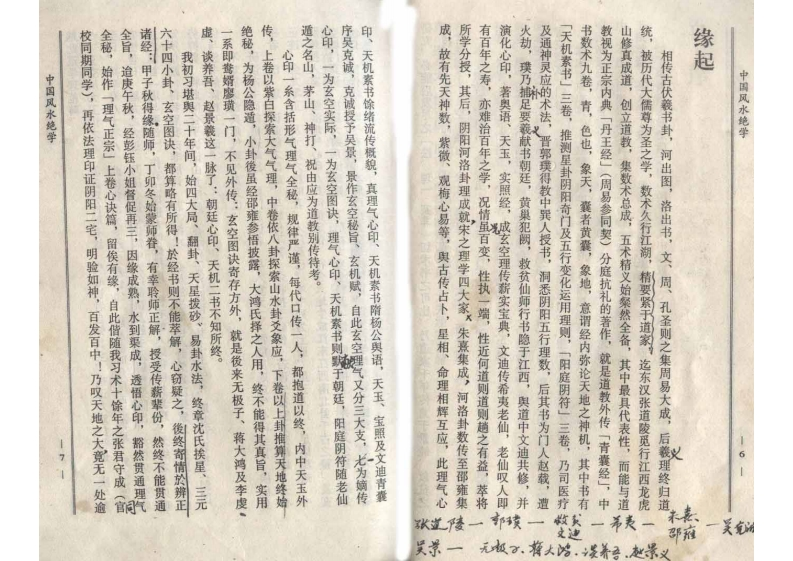 中国风水绝学
—6—
缘起
相传古伏羲书卦，河出图，洛出书，文、周、孔圣则之集周易大成，后羲理终归道
统，被历代大儒尊为圣之学，数术久行江湖，精要紧于道家，迄东汉张道陵觅行江西龙虎
山修真成道，创立道教，集数术总成，五术精义始粲然全备，其中最具代表性，而能与道
教视为正宗内典「丹王经」（周易参同契）分庭抗礼的著作，就是道教外传「青囊经」，中
书数术九卷，青，色也，象天，囊者黄囊，象地，意谓经内弥论天地之神机，其中书有
「天机素书」三卷，推测星卦阴阳奇门及五行变化运用理则，「阳庭阴符」三卷，乃司医疗
及通神灵应的术法，晋郭璞得教中異人授书，洞悉阴阳五行理数，后其书为门人赵载，遭
火劫，璞乃捕足要義献书朝廷，黄巢犯阙，救贫仙师行书隐于江西，與道中文迪共修，并
演化心印，著奥语、天玉、实照经，成玄空理传薪实宝典，文迪传希夷老仙，老仙叹人即
有百年之寿，亦难治百年之学，况情虽百变，性执一端，性近何道则道则趟之有益，萃将
所学分授，其后，阴阳河洛卦理成就宋之理学四大家，朱熹集成，河洛卦数传至邵雍集
成，故有先天神数，紫微，观梅心易等，舆古传占卜，星相，命理相辉互应，此理气心
张道陵—郭璞—救贫
文迪
—希夷—朱熹
邵雍
—吴克诚
吴景—无极子、蒋大鸿、谈养吾、赵景义
中国风水绝学
—7—
印、天机素书馀绪流传概貌，真理气心印、天机素书隋杨公舆语，天玉、宝照及文迪青囊
序吴克诚，克诚授予吴景，景作玄空秘旨、玄机赋，自此玄空理气又分三大支，一为嫡传
心印，一为玄空实际，一为玄空图诀，理气心印、天机素书则默于朝廷，阳庭阴符随老仙
遁之名山，茅山、神打、祝由应为道教别传待考。
心印一系含括形气理气全秘，规律严谨，每代口传一人，都抱道以终，内中天玉外
传，上卷以紫白探索大气气理，中卷依八卦探索山水卦爻象应，下卷以上卦推算天地终始
绝秘，为杨公隐遁，小卦後虽经邵雍参悟披露，大鸿氏择之人用，终不能得其真旨，实用
一系即鸶婿廖璜一门，不见外传，玄空图诀寄存方外，就是後来无极子、蒋大鸿及李虔
虚、谈养吾、赵景羲这一脉了：朝廷心印、天机二书不知所终。
我初习堪舆二十年间，始四大局、翻卦、天星拨砂、易卦水法，终章沈氏挨星、三元
六十四小卦、玄空图诀，都算略有所得！於经书则不能萃解，心窃疑之，後终寄情於辨正
诸经：甲子秋得缘随师，丁卯冬始蒙师眷，有幸聆师正解，授受传薪辈份，然终不能贯通
全旨，迨庚午秋，经彭钰小姐督促再三，因缘成熟，水到渠成，透悟心印，豁然贯通理气
全秘，始作「理气正宗」上卷心诀篇，留俟有缘，自此偕随我习术十馀年之张君守成（官
校同期同学），再依法理印证阴阳二宅，明验如神，百发百中！乃叹天地之大竟无一处逾